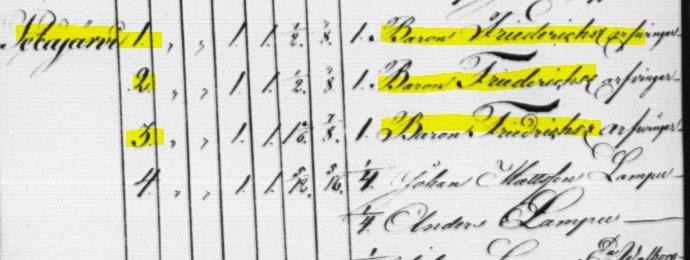 Sotajärvi 1. " " 1. 1. 1/2. 1/8. 1. Baron Friederichs arfvingar
2. " " 1. 1. 1/2. 1/8. 1. Baron Friederichs arfvingar
3. " " 1. 1. 8. 1. Baron Friedrichs arfvingar
4 " " 1. 1. 5/12. 5/16. 1/4 Johan Mattsson Lampu
1/4 Anders Lampu